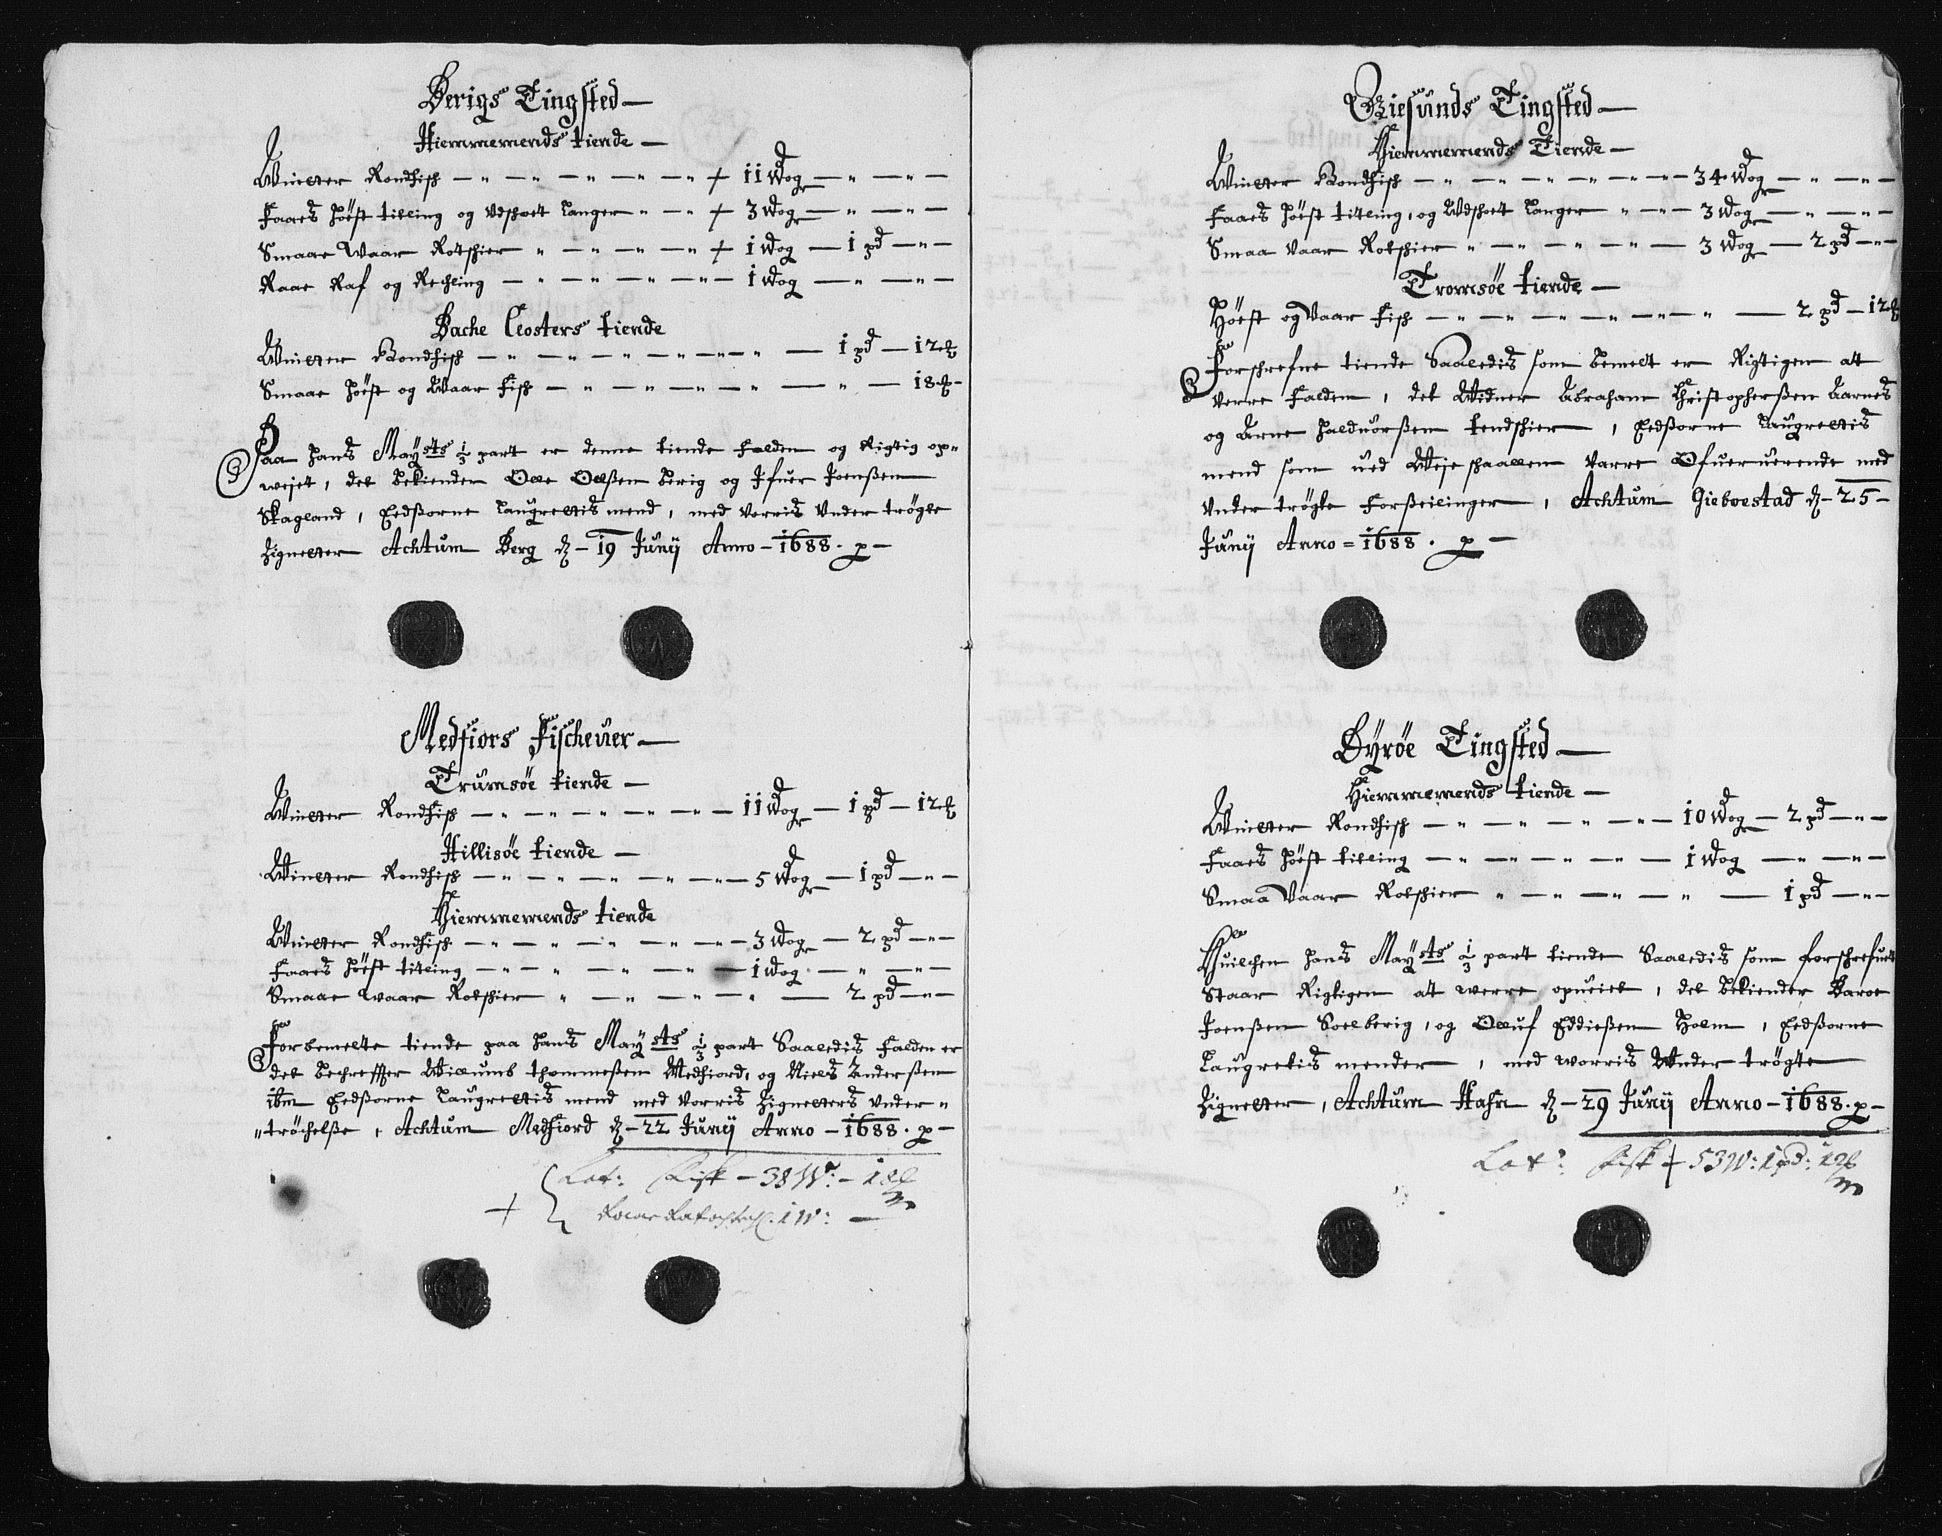 Berigs Tingsted —
Hiemmemends tiende —
Winter Rondfisk — 11 Wog — " —
Faaes höest titling og Udskott Langer " — 3 Wog — " —
Smaae Waar Rotskier " — 1 Wog — 1 pd — " —
Raae Raf og Rechling — 1 Wog — " —
Bache Closters tiende
Winter Rondfisk — 1 pd — 12 ℔
Smaae höest og Waar fisk — " — 18 ℔ -
Paa hans Maysts 1/3 part er denne tiende falden og Rigtig op-
wejet, det bekiender Olle Olßen Berig og Ifuer Joenßen
Skagland, Eedßorne Laugrettis mend, med vorris Under trögte
Zigneter Actum Berg d — 19 Junij Anno — 1688 . p —
Medfiors Fischeuer —
Trumsöe tiende —
Winter Rondfisk — 11 Wog — 1 pd — 12 ℔
Hillisöe tiende —
Winter Rondfisk — 5 Wog — 1 pd — " —
Hiemmemends tiende
Winter Rondfisk — 3 Wog — 2 pd — " —
Faaes höest titling — 1 Wog — " —
Smaae waar Rotskier " — 2 pd — " —
Forbemelte tiende paa hans Maysts 1/3 part Saaledis falden er
det bekreffter Willumb thommeßen Medfiord, og Niels Anderßen
ibm Eedßorne Laugrettis mend med Vorris Zigneters Under "
" tröchelße, Actum Medfiord d — 22 Junij Anno — 1688 . p —
Lat: Fisk — 38 W: — 18 ℔
Raae Raf og Rechl. 1 W: —
Giesunds Tingsted —
Hiemmemends Tiende —
Winter Rondfisk — 34 Wog — " —
Faaes höest titling, og Udskott Langer " — 3 Wog — " —
Smaa Vaar Rotskier " — 3 Wog — 2 pd — " —
Tromsöe tiende —
Höest og Vaar fisk — 2 pd — 12 ℔
Forschrefne tiende Saaledis som bemelt er Rigtigen att
verre falden, det Widner Abraham Christopherßen Aarnes
og Arne haldvorßen tendskier, Eedßorne Laugrettis
mend som ued Weje skaallen Varre Ofueruerende med
Under trögte Forßeilinger, Actum Gieboestad d — 25 —
Junij Anno = 1688 . p —
Öyröe Tingsted —
Hiemmemends tiende —
Winter Rondfisk — 10 Wog — 2 pd — " —
Faaes höest titling — 1 Wog — " —
Smaa Vaar Rotskier " — 1 pd — " —
Huilchen hans Maysts 1/3 part tiende Saaledis som forschrefuet
Staar Rigtigen att werre opueiet, det bekiender Baroe
Joenßen Soelberig, og Olluf Eddießen Holm, Eedßorne
Laugrettis mender, med worris Under trögte
Zigneter, Actum Hafn d — 29 Junij Anno — 1688 . p —
Lat: Fisk — 53 W: 1 pd: 12 ℔